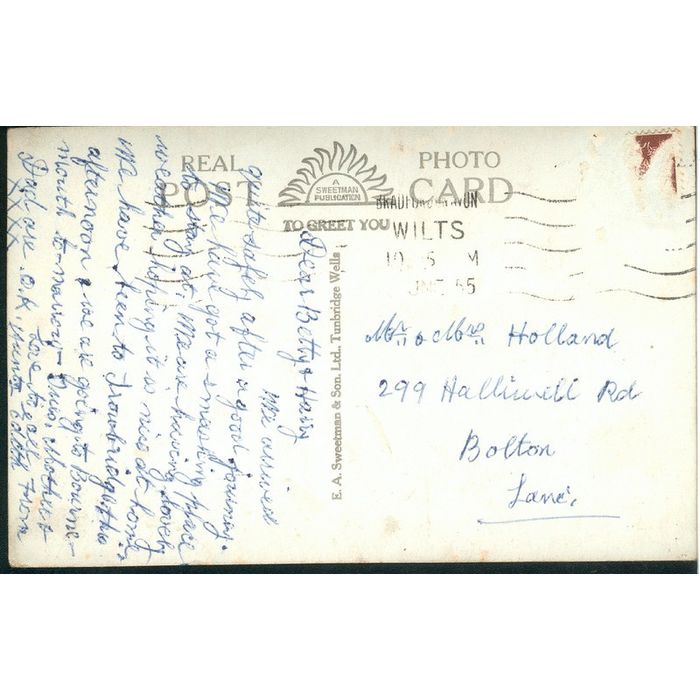 REAL PHOTO
POST CARD
A
SWEETMAN
PUBLICATION
TO GREET YOU
BRADFORD ON AVON
WILTS
JNE 55
E. A. Sweetman & Son. Ltd., Tunbridge Wells
Mr & Mrs Holland
299 Halliwell Rd
Bolton
Lancs,
Dear Betty & Harry
We arrived
quite safely after a good journey.
We have got a smashing place
to stay at, we are having lovely
weather, hoping it is nice at home,
We have been to Trowbridge this
afternoon & we are going to Bourne-
mouth to-morrow. Mother &
Dad are O.K. Love to all from
XXXX